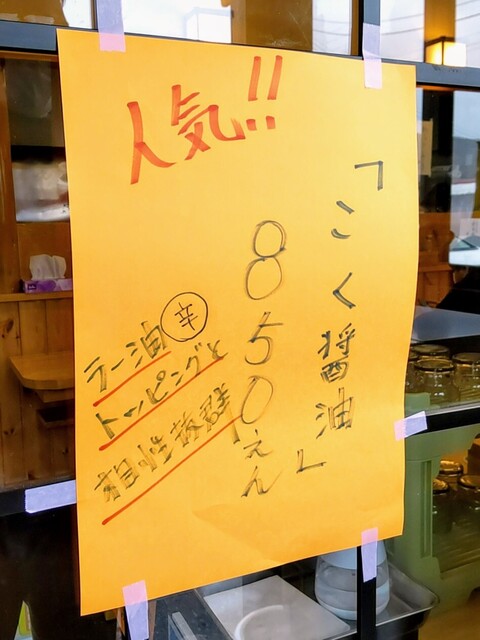 人気!!
「こく醤油」
850えん
ラー油辛
トッピングと
相性抜群